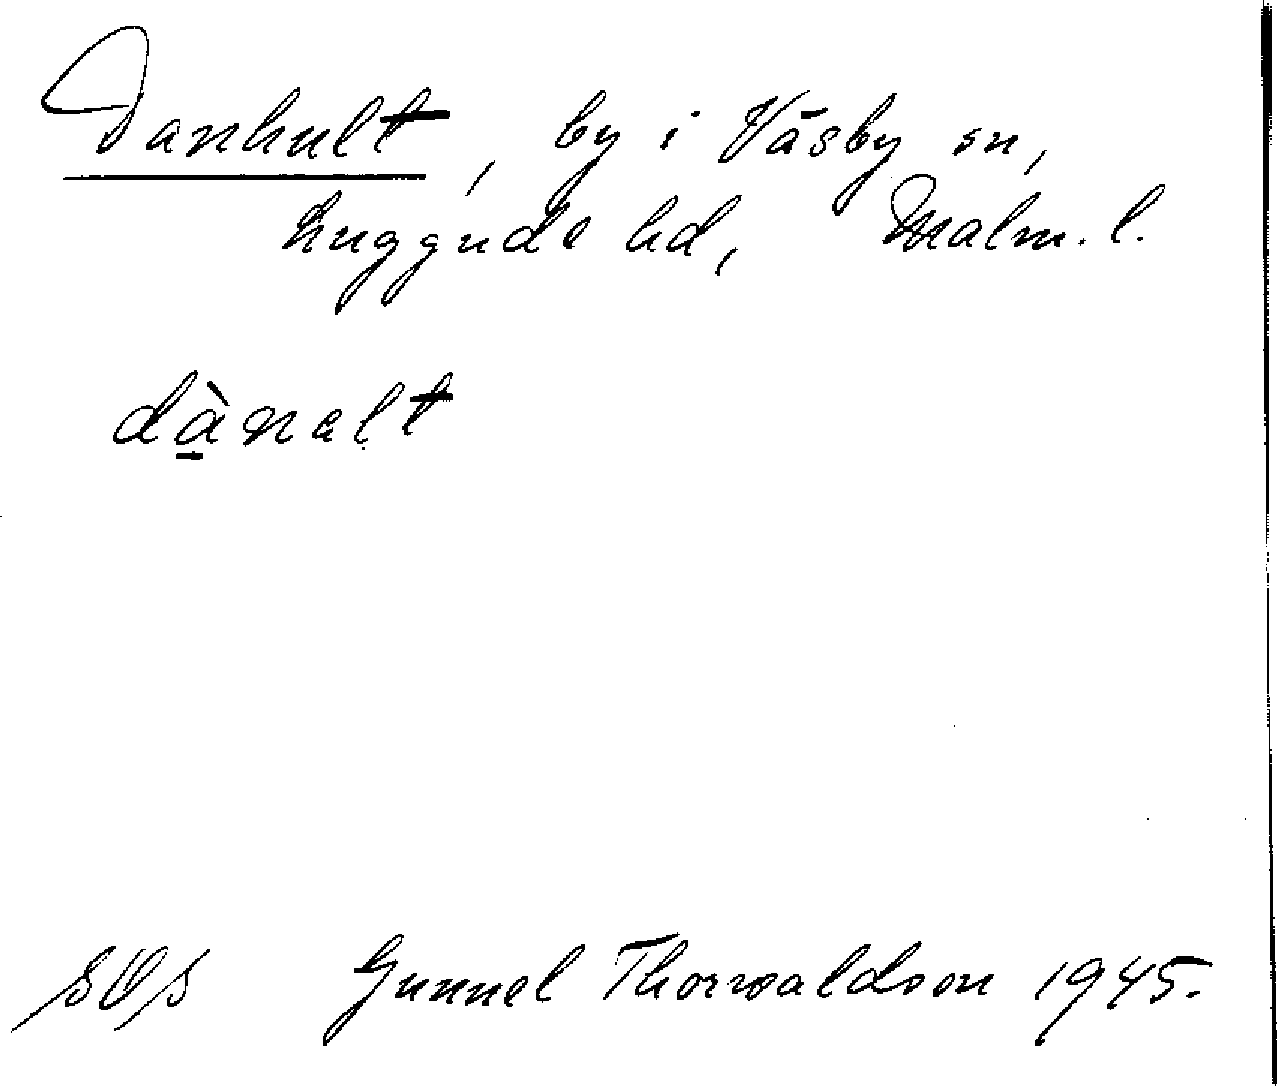 Danhult, by i Väsby sn,
Luggude hd, Malm. l.
dànalt
SOS Gunnel Thorwaldson 1945.